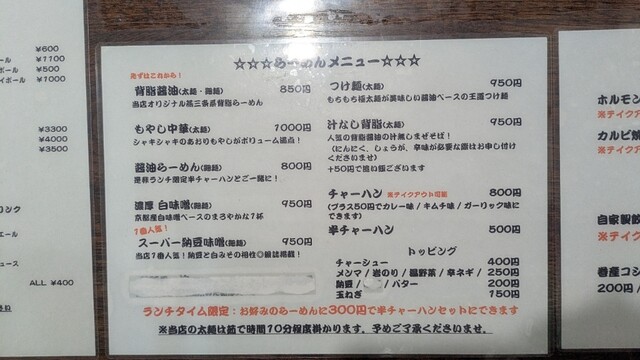 ¥600
¥1100
¥500
¥1000
¥3300
¥4000
¥3500
ALL ¥400
☆☆☆らーめんメニュー☆☆☆
まずはこれから！
背脂醤油(太麺・細麺) 850円
当店オリジナル燕三条系背脂らーめん
もやし中華(太麺) 1000円
シャキシャキのあおりもやしがボリューム満点！
醤油らーめん(細麺) 800円
是非ランチ限定半チャーハンとご一緒に！
濃厚 白味噌(細麺) 950円
京都産白味噌ベースのまろやかな1杯
1番人気！
スーパー納豆味噌(細麺) 950円
当店1番人気！納豆と白みその相性◎雑誌掲載！
つけ麺(太麺) 950円
もちもち極太麺が美味しい醤油ベースの王道つけ麺
汁なし背脂(太麺) 950円
人気の背脂醤油の汁無しまぜそば！
(にんにく、しょうが、辛味が必要な際はお申し付け
くださいませ)
+50円で追い飯ございます
チャーハン ※テイクアウト可能 800円
(プラス50円でカレー味／キムチ味／ガーリック味に
できます)
半チャーハン 500円
トッピング
チャーシュー 400円
メンマ／岩のり／温野菜／辛ネギ／ 250円
納豆／ ／バター 200円
玉ねぎ 150円
ランチタイム限定：お好みのらーめんに300円で半チャーハンセットにできます
※当店の太麺は茹で時間10分程度掛かります。予めご了承くださいませ。
ホルモン
※テイクア
カルビ焼
※テイクア
自家製餃
※テイ
巻産コシ
200円／